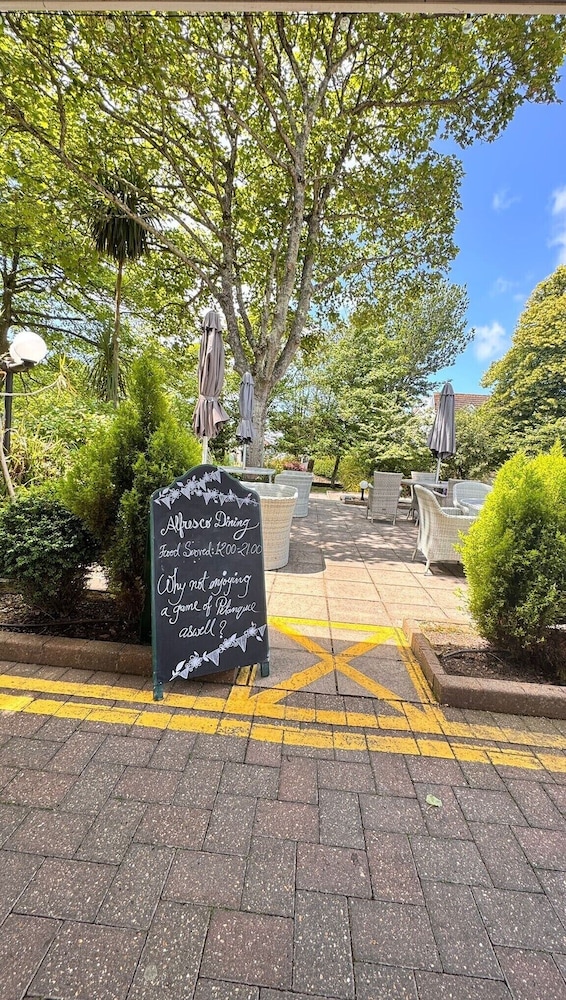 Alfresco Dining
Food Served: 12:00-21:00
Why not enjoying
a game of Petanque
aswell?